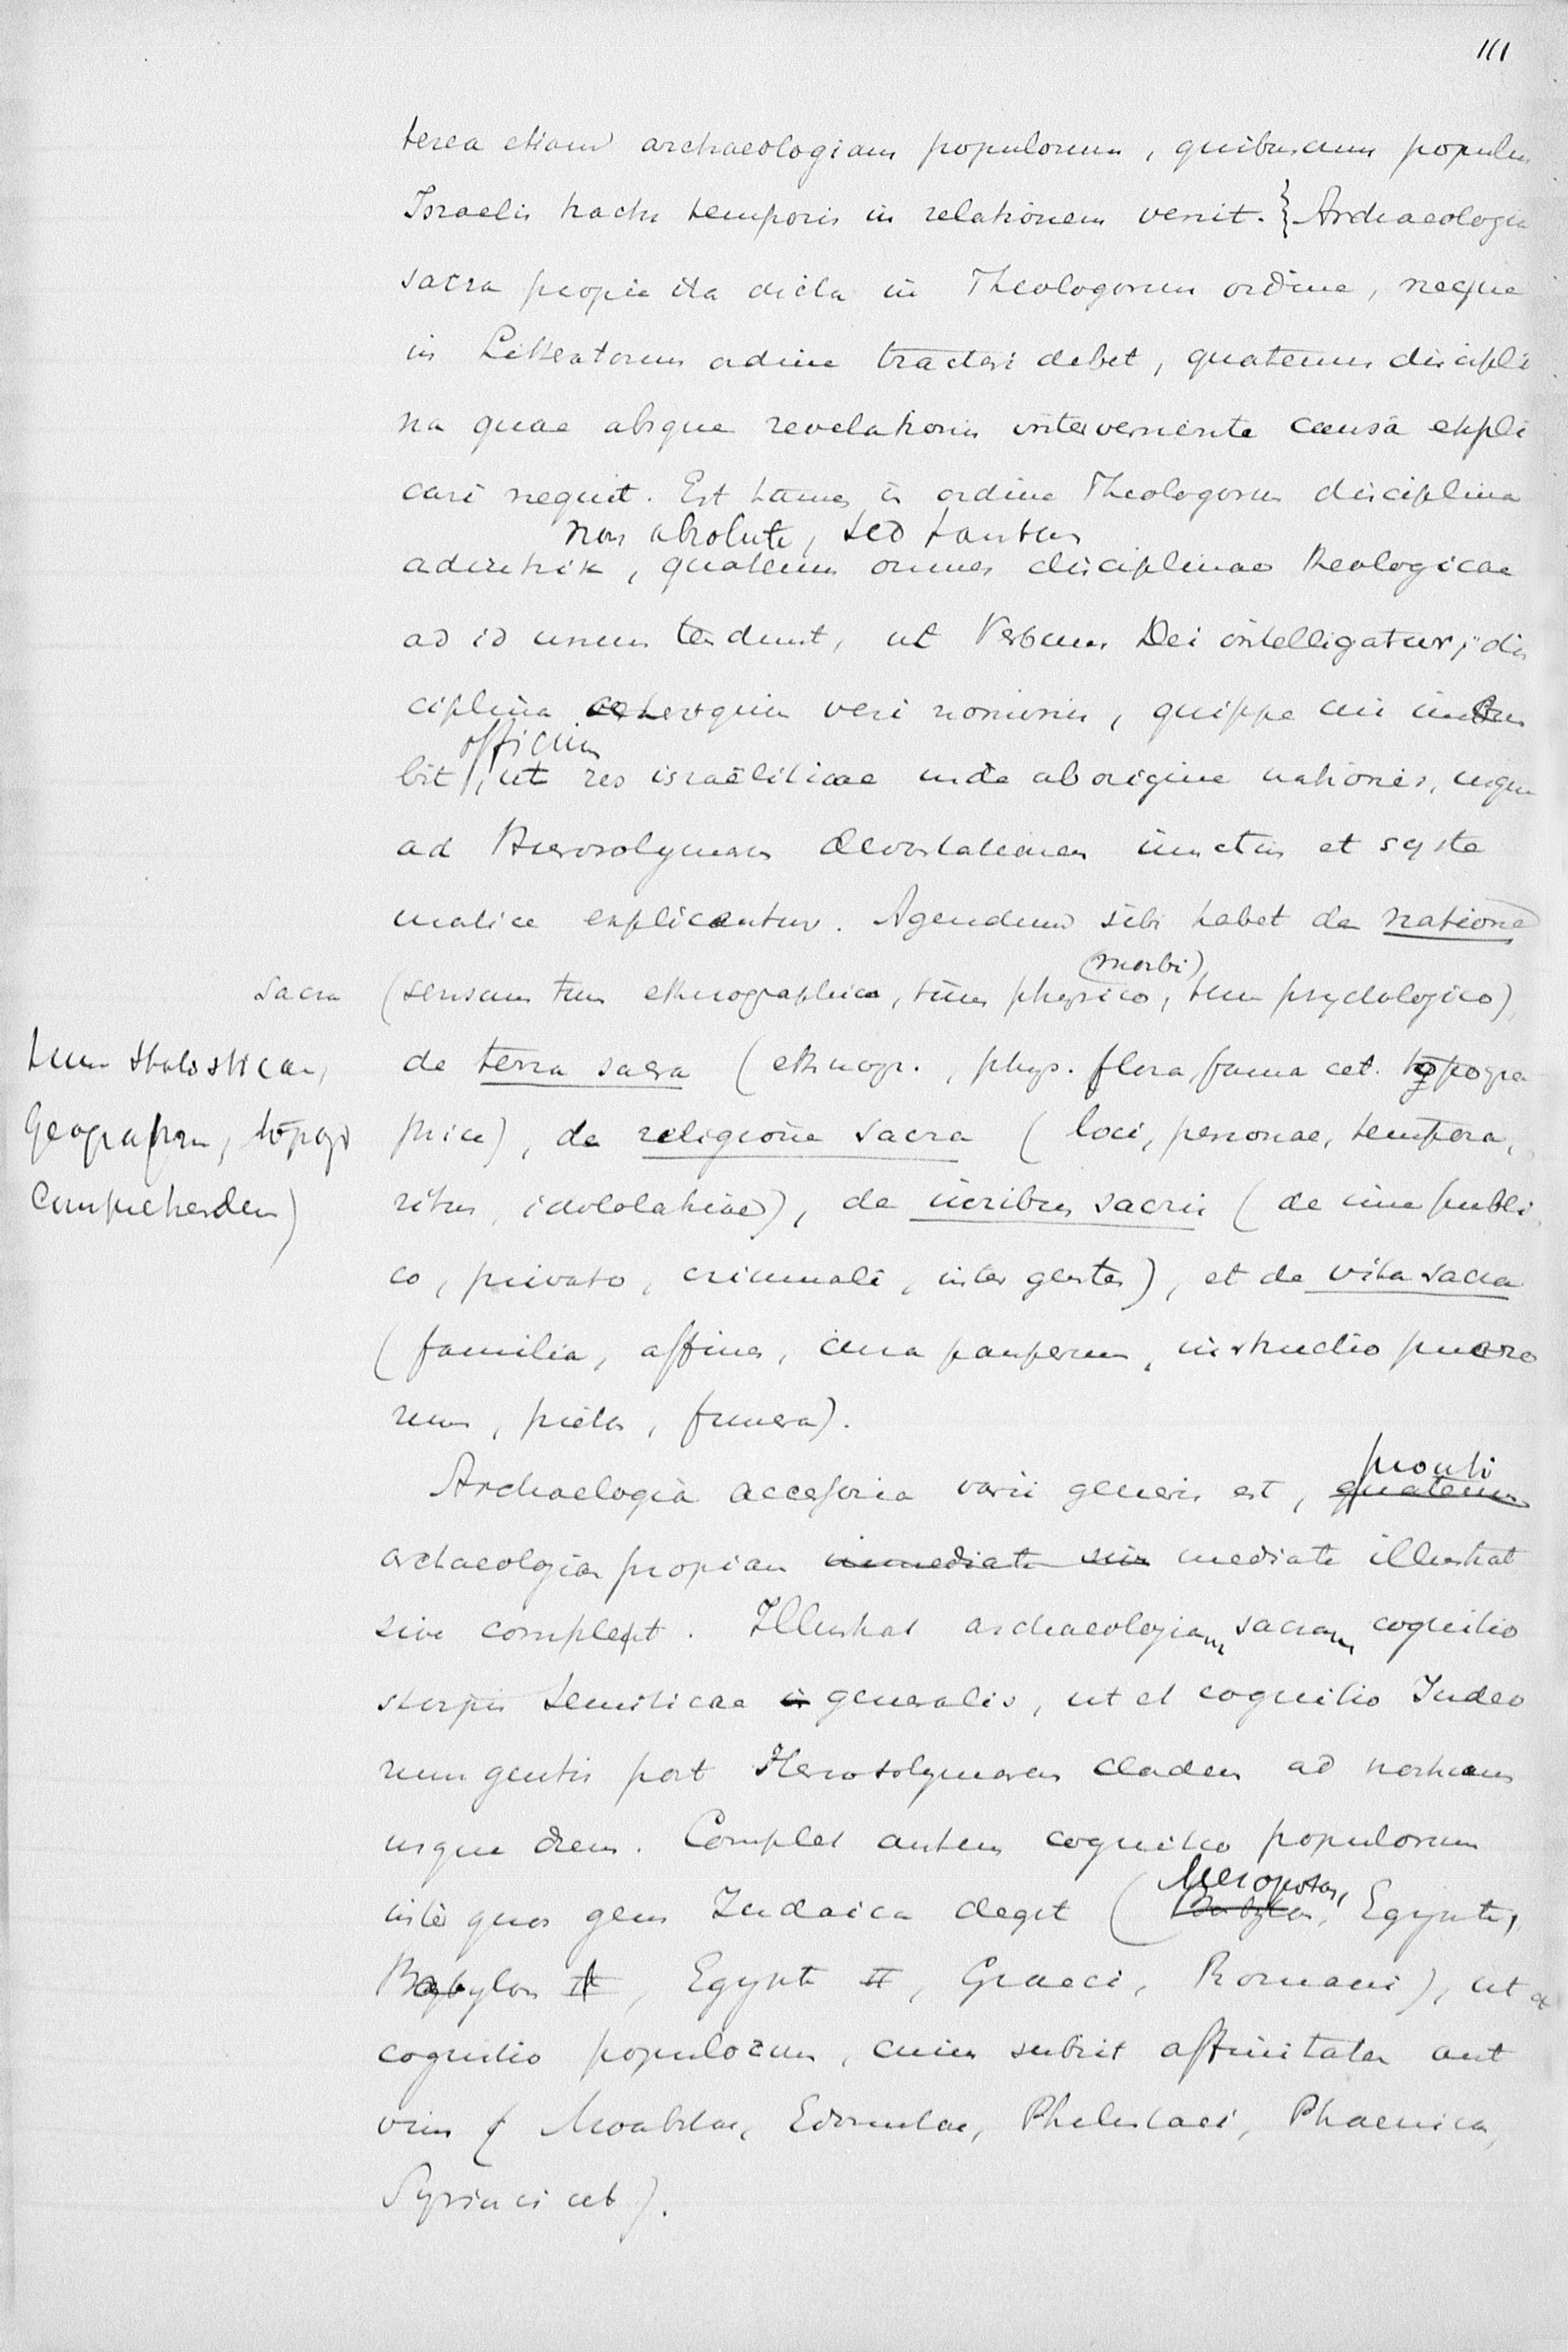 111
terea etiam archaeologiam populorum, quibuscum populus
Israelis tractu temporis in relationem venit. } Archaeologia
sacra proprie ita dicta in Theologorum ordine, neque
in Litteratorum ordine tractari debet, quatenus discipli
na quae absque revelationis interveniente causa expli
cari nequit. Est tamen in ordine Theologorum disciplina
non absolute, sed tantum
adiectitia, quatenus omnes disciplinae theologicae
ad id unum tendunt, ut Verbum Dei intelligatur; dis
ciplina ceteroquin veri nominis, quippe cui incum
officium
bit, ut res israëliticae inde ab origine nationis, usque
ad Hierosolymam devastationem iunctim et syste
matice explicentur. Agendum sibi habet de natione
sacra (sensum tum ethnographico, tum physico, tum psychologico)
(morbi)
tum statisticam,
de terra sacra (ethnogr., phys. flora, fauna cet. topogra
Geografiam, topogr
phice), de religione sacra (loci, personae, tempora,
Comprehendens)
ritus, idololatriae), de iuribus sacris (de iure publi
co, privato, criminali, inter gentes), et de vita sacra
(familia, affines, cura pauperum, instructio puero
rum, pietas, funera).
prouti
Archaelogia accessoria varii generis est, quatenus
archaeologiam propriam immediate sive mediate illustrat
sive complet. Illustrat archaeologiam sacram cognitio
stirpis Semiticae in generalis, ut et cognitio Iudeo
rum gentis post Hierosolymarum cladem ad nostrum
usque diem. Complet autem cognitio populorum
Mesopotam,
inter quos gens Iudaica degit (Babylon, Egypte,
Babylon II, Egypte II, Graeci, Romani), ut et
cognitio populorum, cuius subiit affinitatem aut
vim (Moabitae, Edomitae, Philistaei, Phaenices,
Syriaci cet).